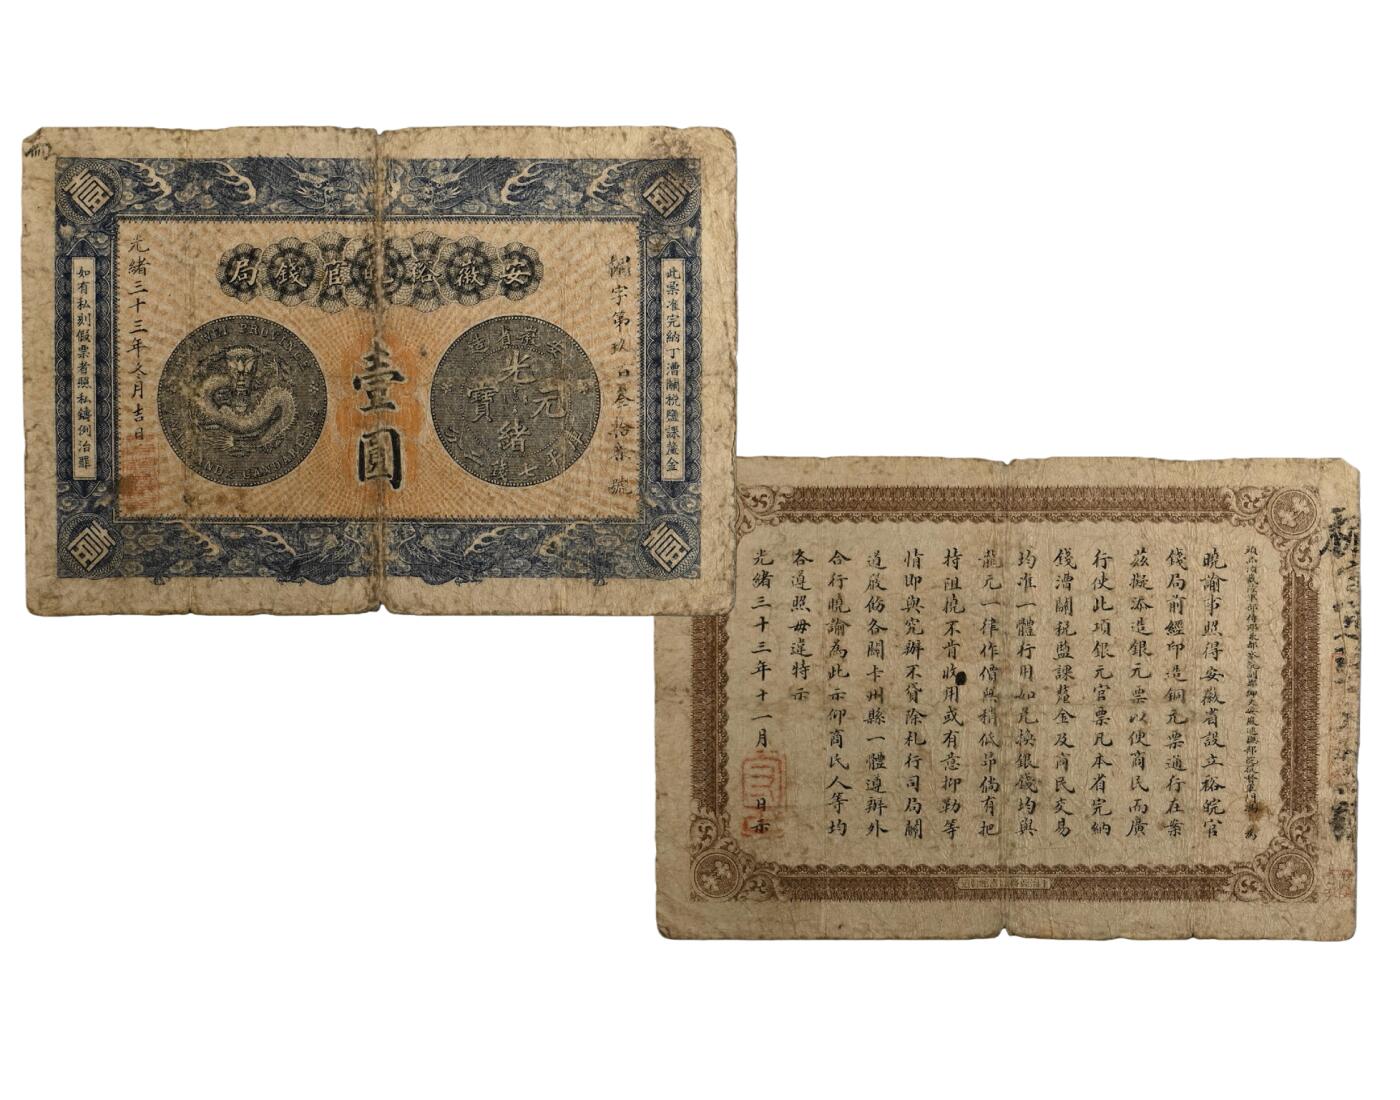 安徽裕皖官錢局
此票准完納丁漕關稅鹽課釐金
字第玖百叁拾柒號
壹圓
安徽省造
光緒元寶
庫平七錢二分
光緒三十三年冬月吉日
如有私刻假票者照私鑄例治罪
壹
壹
壹
壹
曉諭事照得安徽省設立裕皖官
錢局前經印造銅元票通行在案
茲擬添造銀元票以便商民而廣
行使此項銀元官票凡本省完納
錢漕關稅鹽課釐金及商民交易
均准一體行用如兌換銀錢均與
龍元一律作價與稍低昂倘有把
持阻撓不肯收用或有意抑勒等
情即與究辦不貸除札行司局關
道嚴飭各關卡州縣一體遵辦外
合行曉諭為此示仰商民人等均
各遵照毋違特示
光緒三十三年十一月 日示